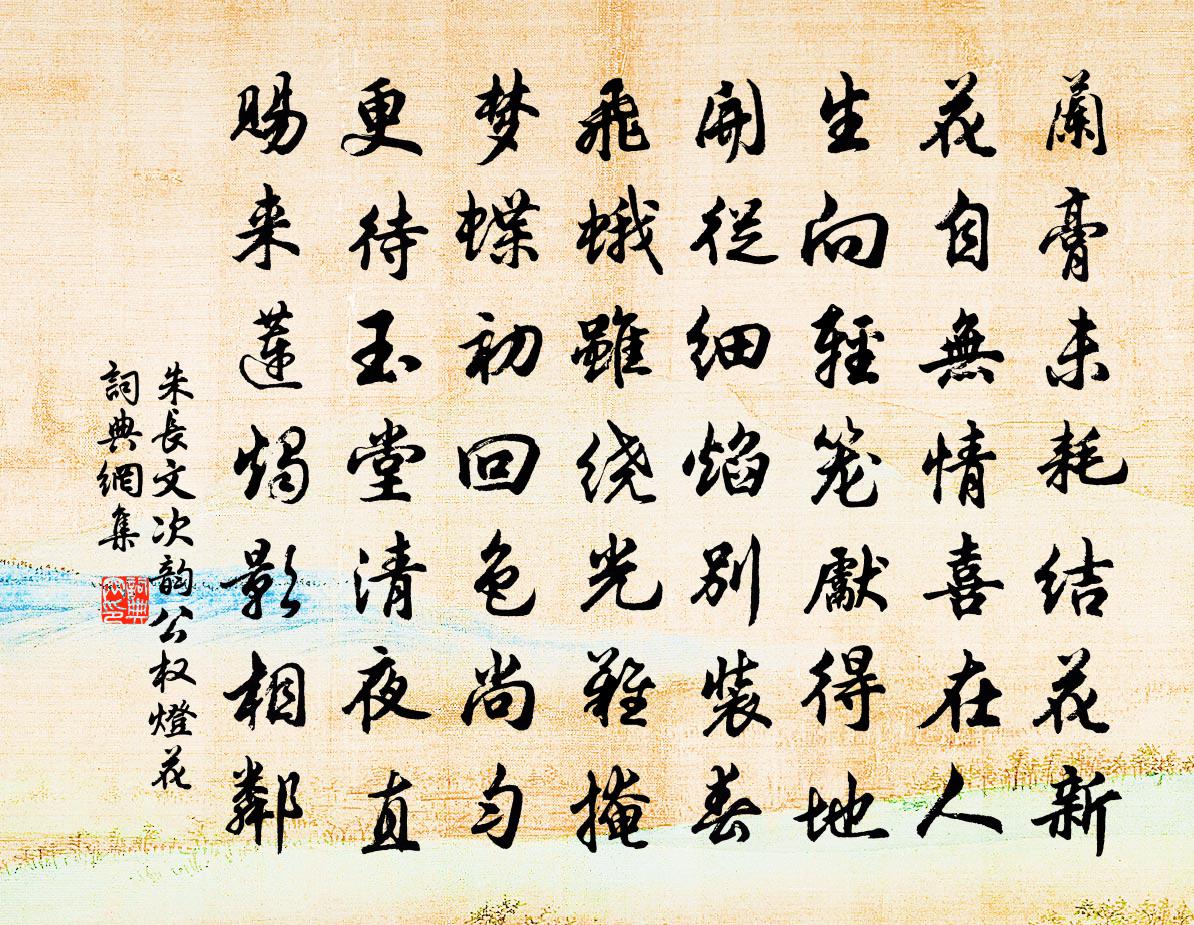 蘭膏未耗结花新
花自無情喜在人
生向輕笼獻得地
開從细焰别裝春
飛蛾雖绕光難掩
梦蝶初回色尚匀
更待玉堂清夜直
赐来蓮燭影相鄰
朱長文次韵公权燈花
詞典網集